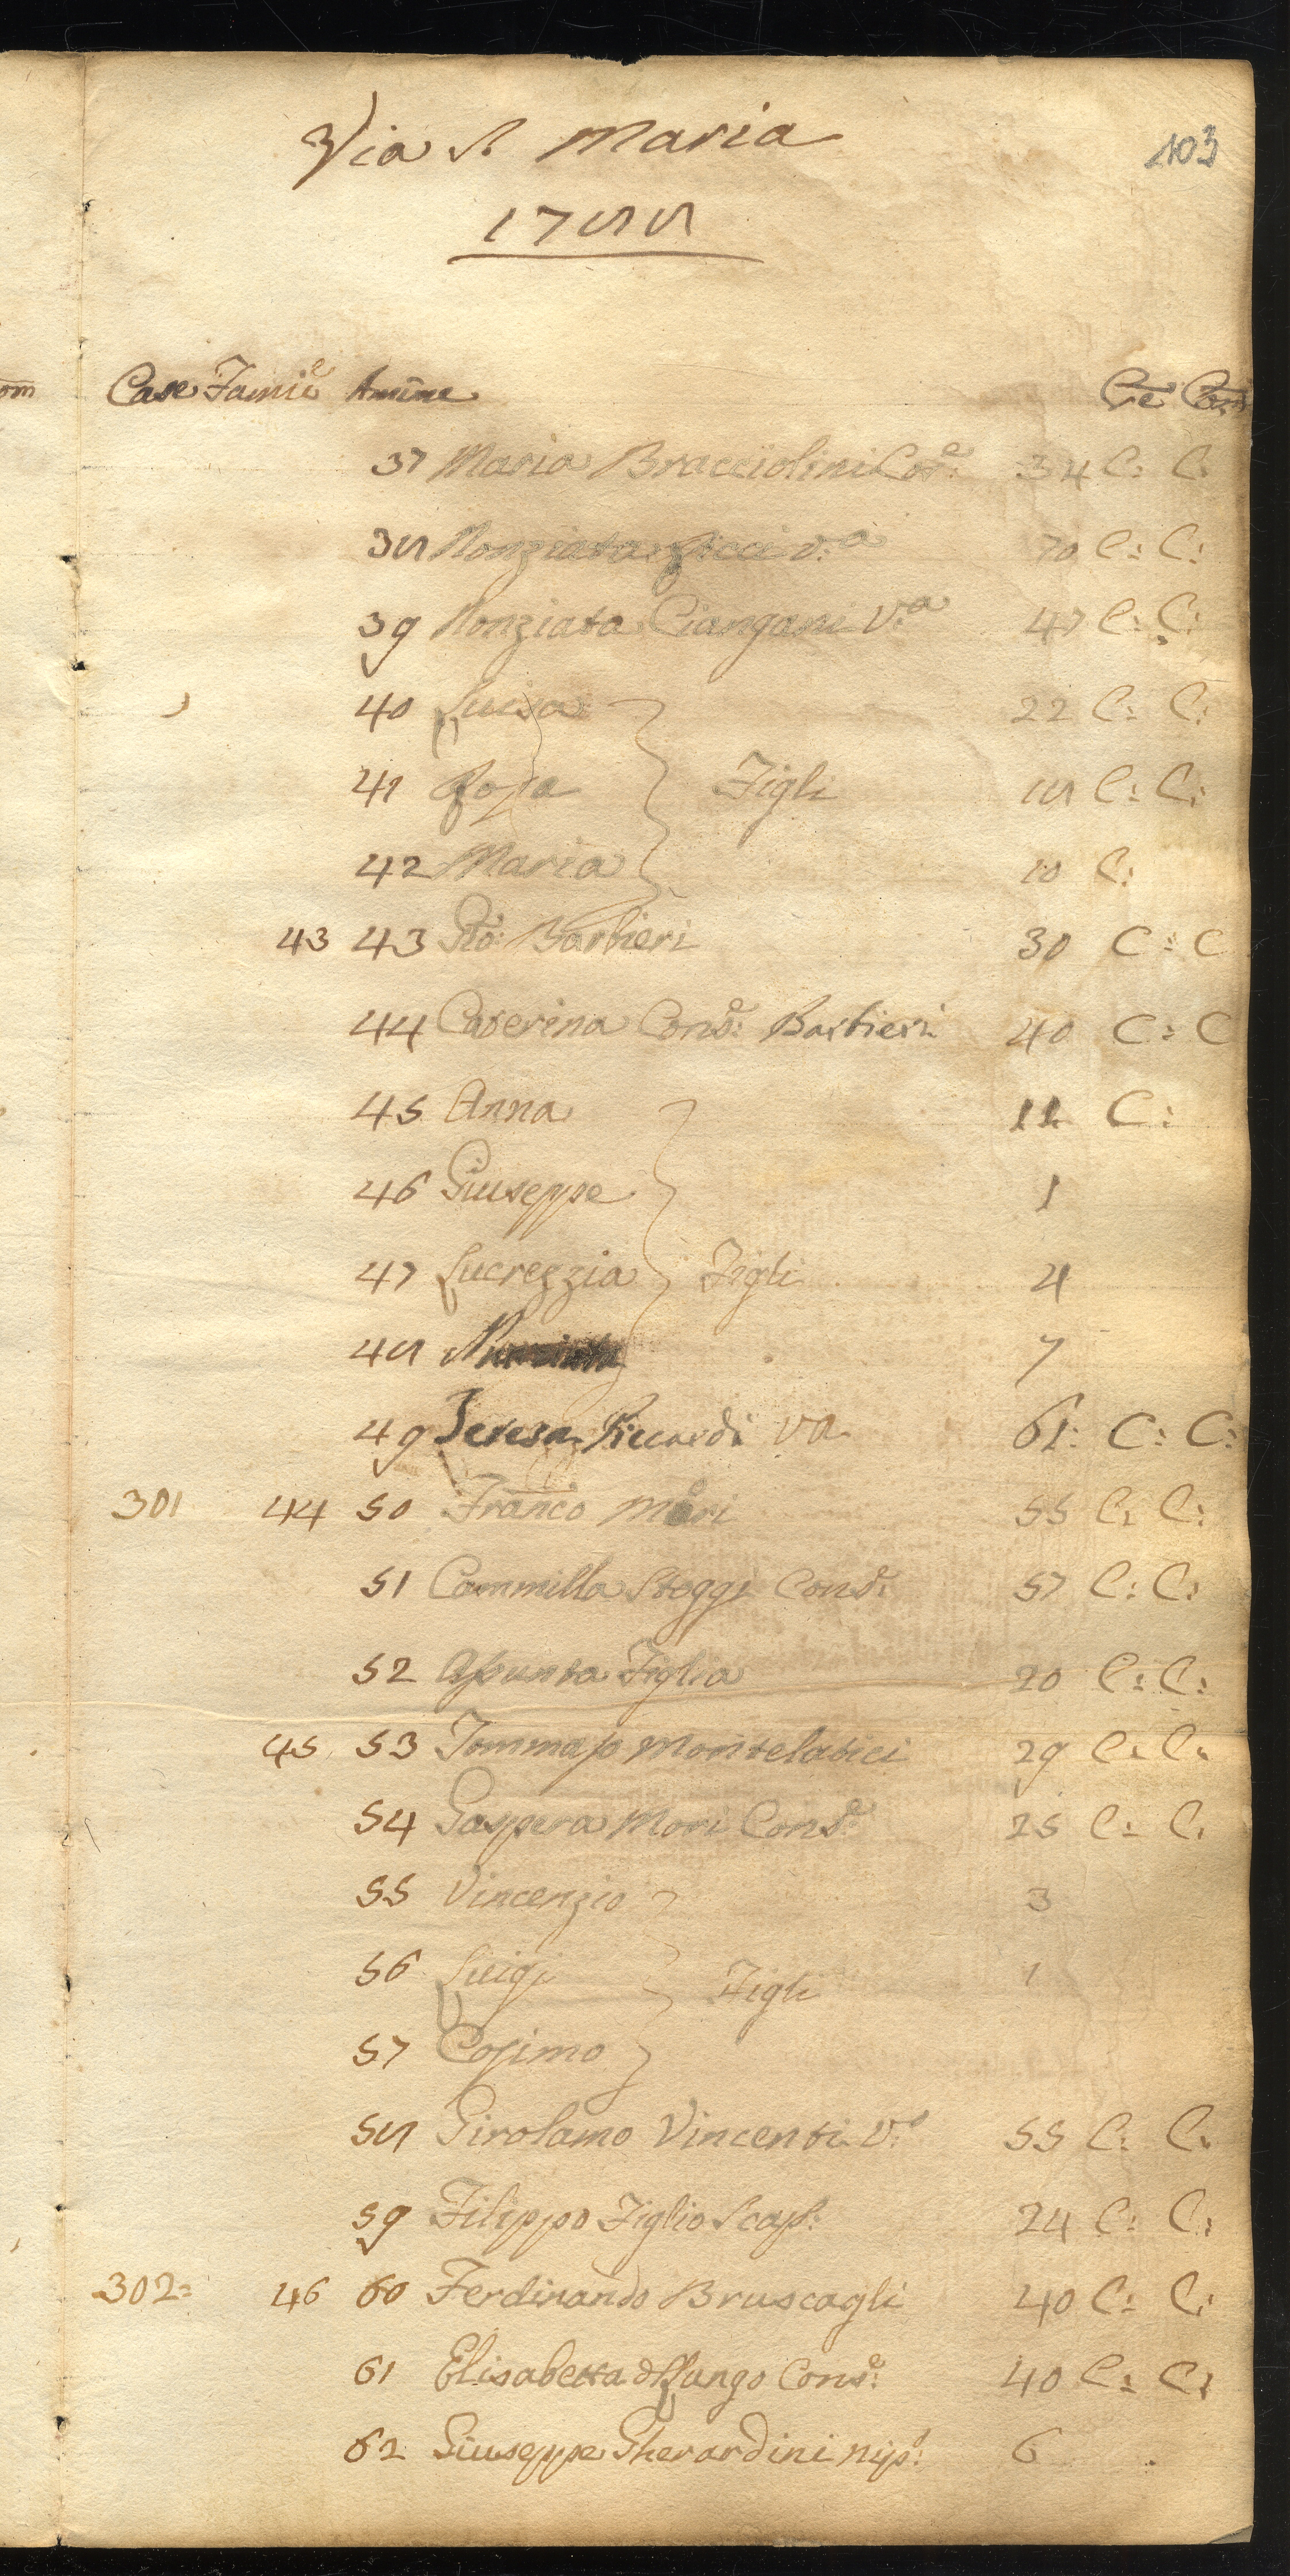 Via S. Maria
103
1788
Case Famie Anime Cre Com
37 Maria Bracciolini Cose: 34 C: C:
38 Nonziata Ricci V:a 70 C: C:
39 Nonziata Ciangani V:a 47 C: C:
40 Luisa 22 C: C:
41 Rosa Figli 18 C: C:
42 Maria 10 C:
43 43 Gio: Barbieri 30 C: C
44 Caterina Conse: Barbieri 40 C: C
45 Anna 11 C:
46 Giuseppe 1
47 Lucrezzia Figli 4
48 Nunziata 7
49 Teresa Riccardi va 61: C: C:
301 44 50 Franco Mori 55 C: C:
51 Cammilla Steggi Cons: 57 C: C:
52 Assunta Figlia 20 C: C:
45 53 Tommaso Montelatici 29 C: C:
54 Gaspera Mori Conse: 25 C: C:
55 Vincenzio 3
56 Luigi Figli 1
57 Cosimo
58 Girolamo Vincenti V:o 55 C: C:
59 Filippo Figlio Scap: 24 C: C:
302= 46 60 Ferdinando Bruscagli 40 C: C:
61 Elisabetta del Lungo Conse: 40 C: C:
62 Giuseppe Gherardini nip: 6